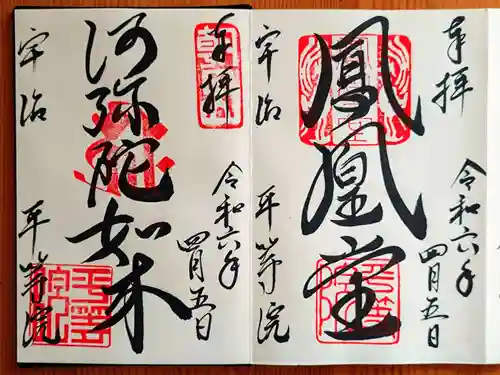 奉拝
鳳凰堂
宇治 平等院
令和六年
四月五日
奉拝
阿弥陀如来
宇治 平等院
令和六年
四月五日